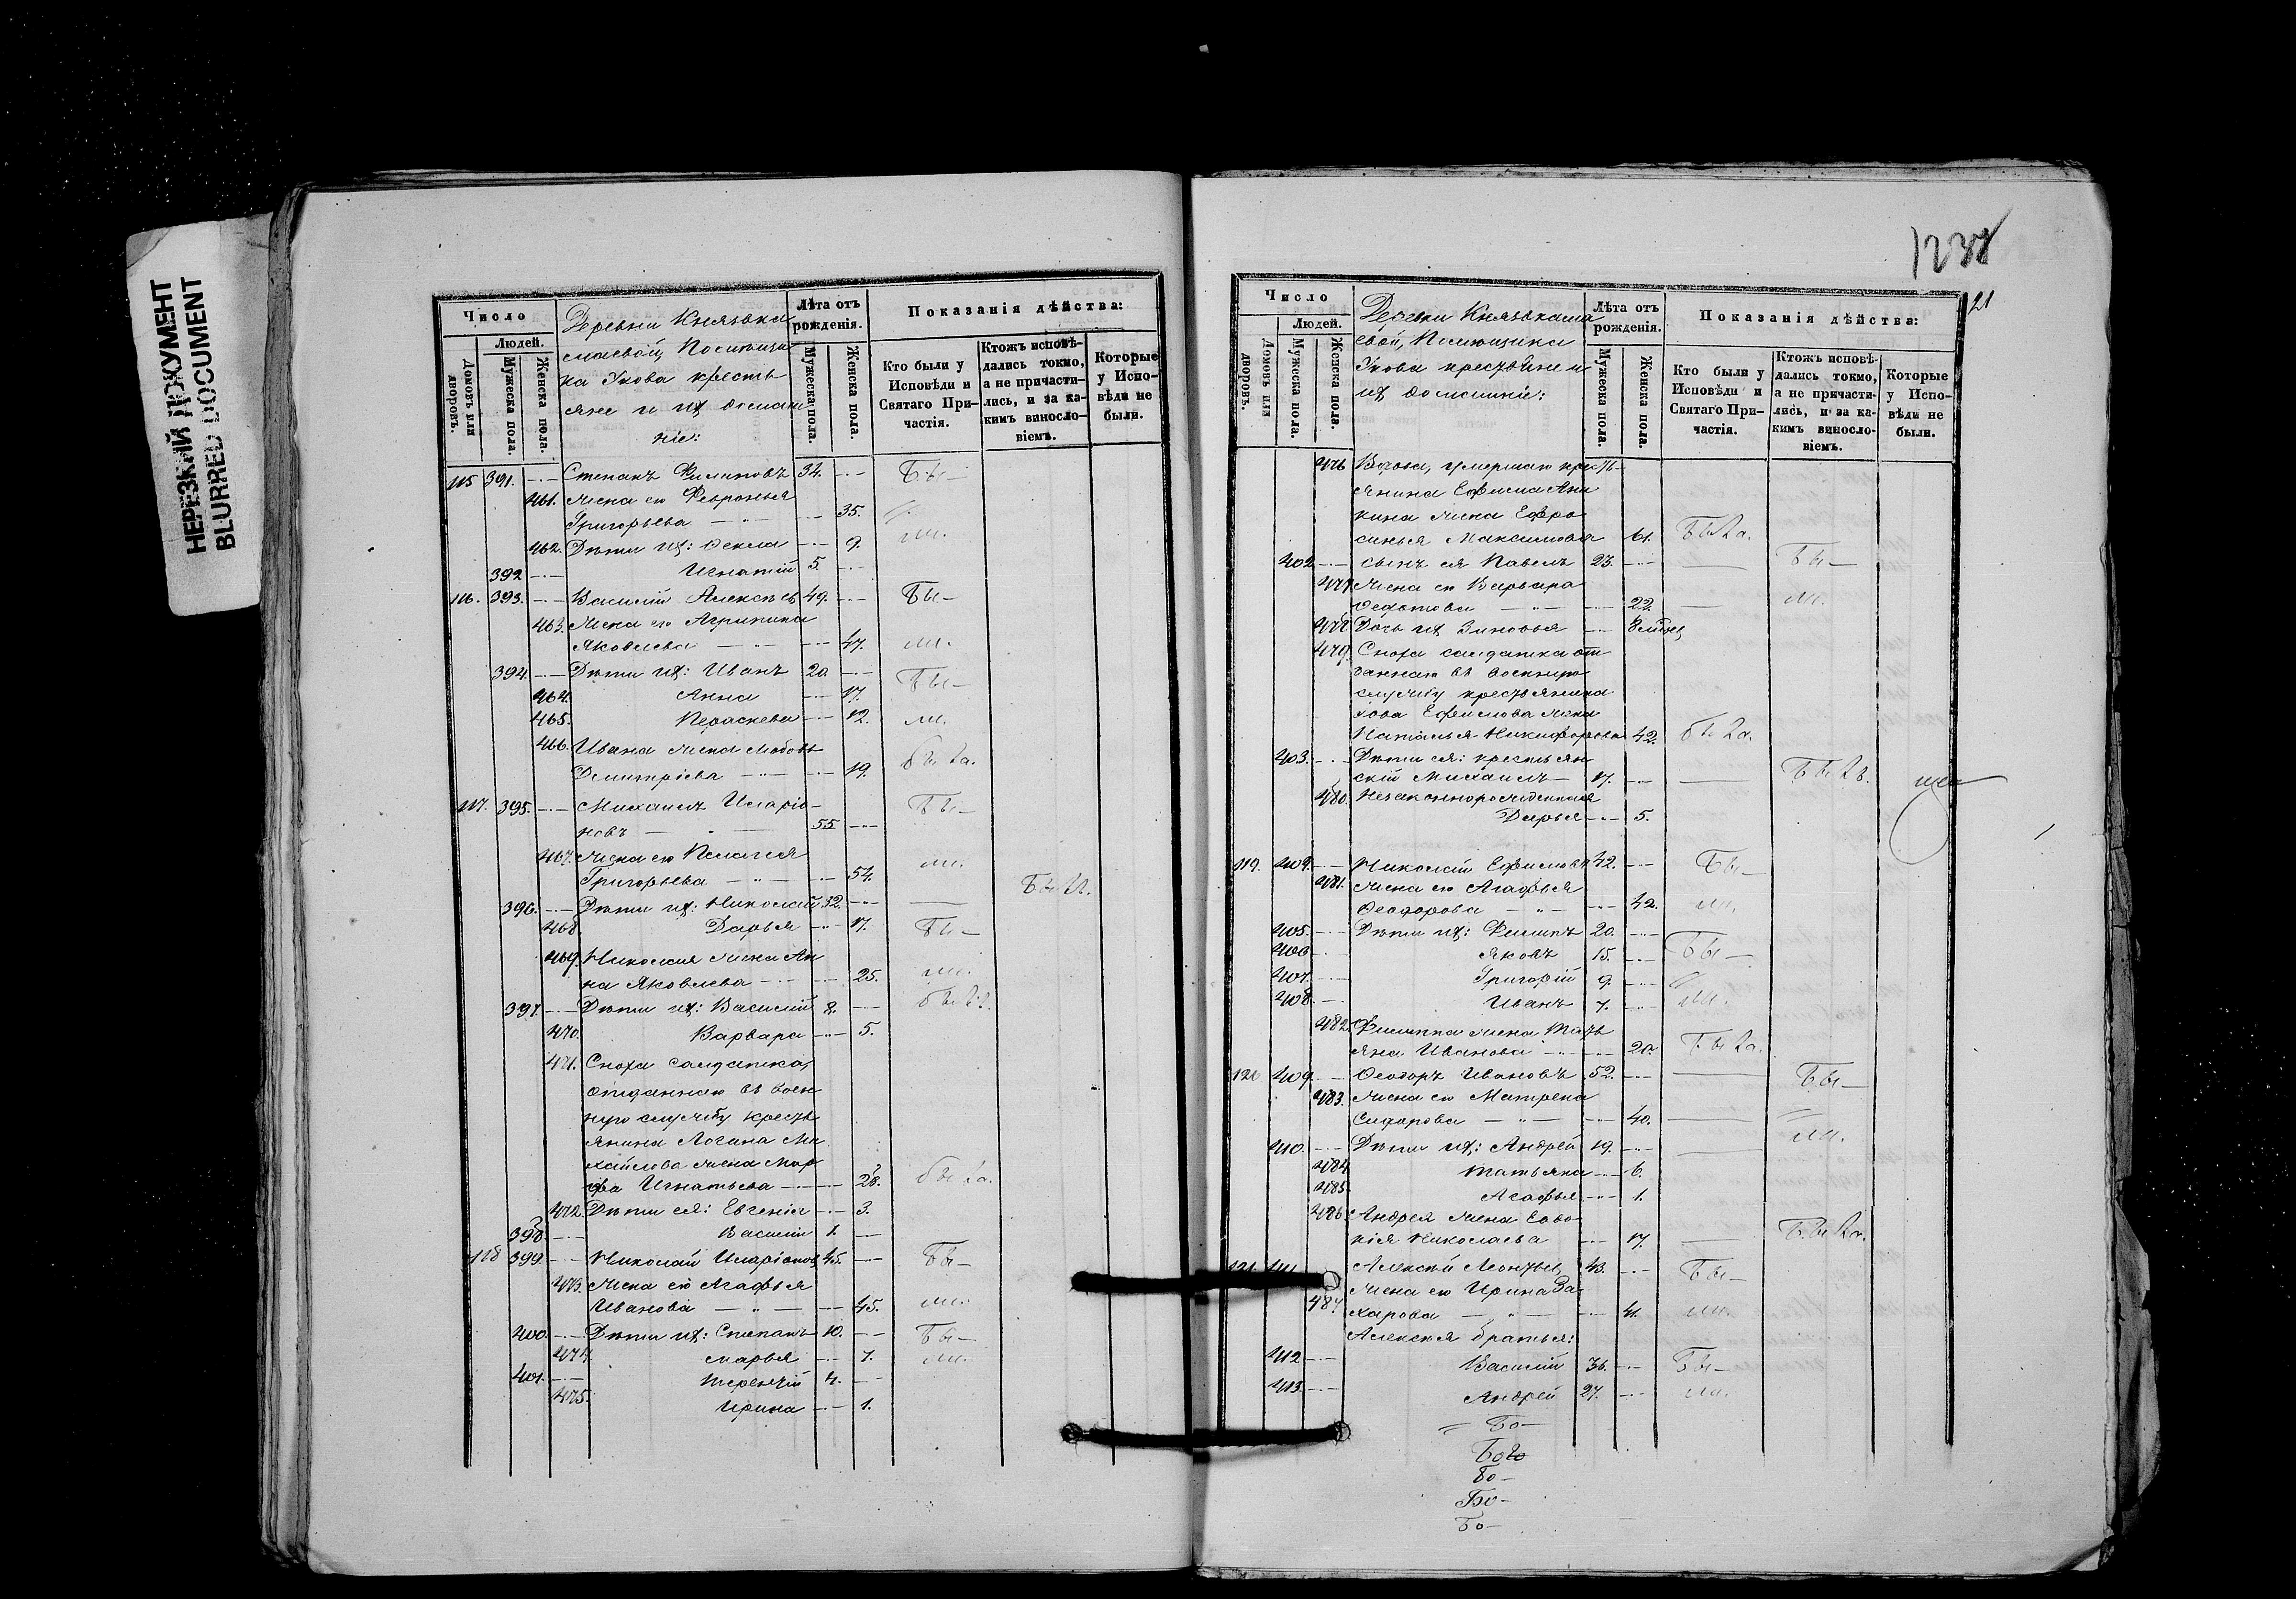 НЕРЕЗКИЙ ДОКУМЕНТ
BLURRED DOCUMENT
Число
Людей.
Домовъ или дворовъ.
Мужеска пола.
Женска пола.
Деревни Князевка
маевой, Помѣщи
ка Укова кресть
яне и ихъ домаш
ніе:
Лѣта отъ рожденія.
Мужеска пола.
Женска пола.
Показанія дѣйства:
Кто были у Исповѣди и Святаго Причастія.
Ктожъ исповѣдались токмо, а не причастились, и за какимъ винословіемъ.
Которые у Исповѣди не были.
115 391. Степанъ Филиповъ 34. Бы—
461. Жена его Февронья
Григорьева 35.
462. Дѣти ихъ: Ѳекла 9. ли.
392 Игнатій 5.
116. 393. Василій Алексѣевъ 49. Бы—
463. Жена его Агрипина
Яковлева 47. ли.
394. Дѣти ихъ: Иванъ 20 Бы—
464. Анна 17.
465. Параскева 12. ли.
466. Ивана жена Любовь
Димитріева 19. была.
117. 395. Михаилъ Иларіо-
новъ 55 Бы—
467. Жена его Пелагея
Григорьева 54. ли.
396. Дѣти ихъ: Николай 32. Былъ.
468. Дарья 17. Бы—
469. Николая жена Ан
на Яковлева 25. ли.
397. Дѣти ихъ: Василій 8. былъ.
470. Варвара 5.
471. Сноха салдатка,
отданнаго въ воен
ную службу кресть
янина Логина Ми
хайлова жена Мар
ѳа Игнатьева 28. была.
472. Дѣти ея: Евгенія 3.
398 Василій 1.
118 399. Николай Иларіоновъ 45. Бы—
473. Жена его Агафья
Иванова 45. ли.
400. Дѣти ихъ: Степанъ 10. Бы—
474. Марья 7. ли.
401. Терентій 4.
475. Ирина 1.
1238
121
Число
Людей.
Домовъ или дворовъ.
Мужеска пола.
Женска пола.
Деревни Князевкама
евой, Помѣщика
Укова крестьяне и
ихъ домашніе:
Лѣта отъ рожденія.
Мужеска пола.
Женска пола.
Показанія дѣйства:
Кто были у Исповѣди и Святаго Причастія.
Ктожъ исповѣдались токмо, а не причастились, и за какимъ винословіемъ.
Которые у Исповѣди не были.
476 Вдова, умершаго кресть-
янина Ефима Ани
кина жена Ефро
синья Максимова 61. Была.
402 сынъ ея Павелъ 23. Бы—
477 Жена его Варвара
Ѳедотова 22 ли.
478 Дочь ихъ Зиновья
479. Сноха салдатка от
даннаго въ военную
службу крестьянина
Ефимова жена
Наталья Никифорова 42. была.
403. Дѣти ея: крестьян
скій Михаилъ 17. Былъ.
480. Незаконнорожденная
Дарья 5.
119. 404. Николай Ефимовъ 42. Бы—
481. Жена его Агафья
Ѳеодорова 42. ли.
405. Дѣти ихъ: Филипъ 20.
406 Яковъ 15. Бы—
407. Григорій 9.
408 Иванъ 7. ли.
482. Филиппа жена Тать
яна Иванова 20. Была.
120 409 Ѳеодоръ Ивановъ 52. Бы—
483. Жена его Матрена
Сидорова 40.
410. Дѣти ихъ: Андрей 19. ли.
484 Татьяна 6.
485. Агафья 1.
486. Андрея жена Евдо-
кія Николаева 17. Была.
121 411 Алексѣй Леонтьевъ 43. Бы—
487 Жена его Ирина За-
харова 41. ли.
Алексѣя братья:
412 Василій 36. Бы—
413. Андрей 27. ли.
Бо—
Бо—
Бо—
Бо—